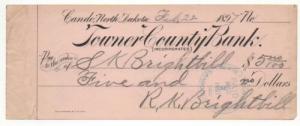 Cando, North Dakota, Feb 22 1897 No
Towner County Bank.
(INCORPORATED)
Pay to the order of S K Brightbill $5 no/100
Five and no Dollars
K. K. Brightbill